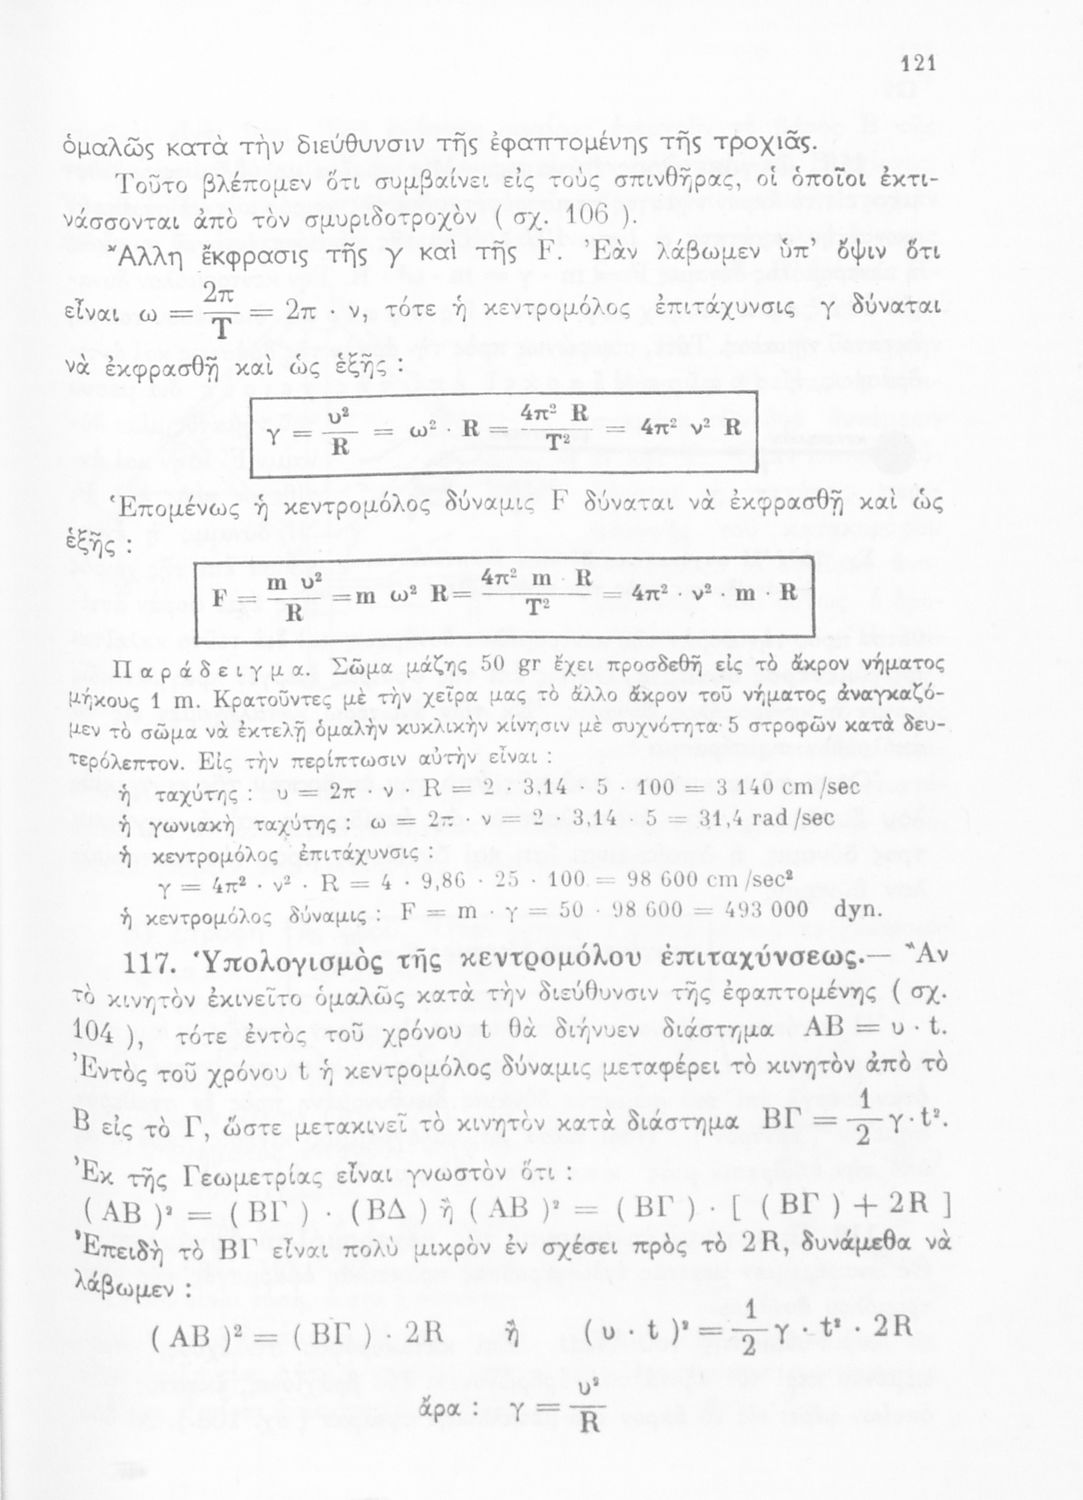 121
ὁμαλῶς κατὰ τὴν διεύθυνσιν τῆς ἐφαπτομένης τῆς τροχιᾶς.
Τοῦτο βλέπομεν ὅτι συμβαίνει εἰς τοὺς σπινθῆρας, οἱ ὁποῖοι ἐκτι-
νάσσονται ἀπὸ τὸν σμυριδοτροχὸν ( σχ. 106 ).
Ἄλλη ἔκφρασις τῆς γ καὶ τῆς F. Ἐὰν λάβωμεν ὑπ' ὄψιν ὅτι
εἶναι ω = 2π/T = 2π · ν, τότε ἡ κεντρομόλος ἐπιτάχυνσις γ δύναται
νὰ ἐκφρασθῇ καὶ ὡς ἑξῆς :
γ = υ²/R = ω² · R = 4π² R/T² = 4π² ν² R
Ἑπομένως ἡ κεντρομόλος δύναμις F δύναται νὰ ἐκφρασθῇ καὶ ὡς
ἑξῆς :
F = m υ²/R = m ω² R = 4π² m R/T² = 4π² · ν² · m · R
Παράδειγμα. Σῶμα μάζης 50 gr ἔχει προσδεθῆ εἰς τὸ ἄκρον νήματος
μήκους 1 m. Κρατοῦντες μὲ τὴν χεῖρα μας τὸ ἄλλο ἄκρον τοῦ νήματος ἀναγκαζό-
μεν τὸ σῶμα νὰ ἐκτελῇ ὁμαλὴν κυκλικὴν κίνησιν μὲ συχνότητα 5 στροφῶν κατὰ δευ-
τερόλεπτον. Εἰς τὴν περίπτωσιν αὐτὴν εἶναι :
ἡ ταχύτης : υ = 2π · ν · R = 2 · 3,14 · 5 · 100 = 3 140 cm/sec
ἡ γωνιακὴ ταχύτης : ω = 2π · ν = 2 · 3,14 · 5 = 31,4 rad/sec
ἡ κεντρομόλος ἐπιτάχυνσις :
γ = 4π² · ν² · R = 4 · 9,86 · 25 · 100 = 98 600 cm/sec²
ἡ κεντρομόλος δύναμις : F = m · γ = 50 · 98 600 = 493 000 dyn.
117. Ὑπολογισμὸς τῆς κεντρομόλου ἐπιταχύνσεως.— Ἂν
τὸ κινητὸν ἐκινεῖτο ὁμαλῶς κατὰ τὴν διεύθυνσιν τῆς ἐφαπτομένης ( σχ.
104 ), τότε ἐντὸς τοῦ χρόνου t θὰ διήνυεν διάστημα AB = υ · t.
Ἐντὸς τοῦ χρόνου t ἡ κεντρομόλος δύναμις μεταφέρει τὸ κινητὸν ἀπὸ τὸ
Β εἰς τὸ Γ, ὥστε μετακινεῖ τὸ κινητὸν κατὰ διάστημα ΒΓ = 1/2 γ · t².
Ἐκ τῆς Γεωμετρίας εἶναι γνωστὸν ὅτι :
( AB )² = ( ΒΓ ) · ( ΒΔ ) ἢ ( AB )² = ( ΒΓ ) · [ ( ΒΓ ) + 2R ]
Ἐπειδὴ τὸ ΒΓ εἶναι πολὺ μικρὸν ἐν σχέσει πρὸς τὸ 2R, δυνάμεθα νὰ
λάβωμεν :
( AB )² = ( ΒΓ ) · 2R ἢ ( υ · t )² = 1/2 γ · t² · 2R
ἄρα : γ = υ²/R